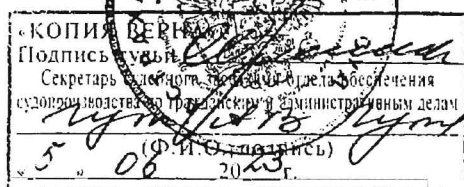 «КОПИЯ ВЕРНА»
Подпись судьи
Секретарь судебного заседания отдела обеспечения
судопроизводства по гражданским и административным делам
(Ф.И.О., подпись)
« 5 » 06 2023 г.